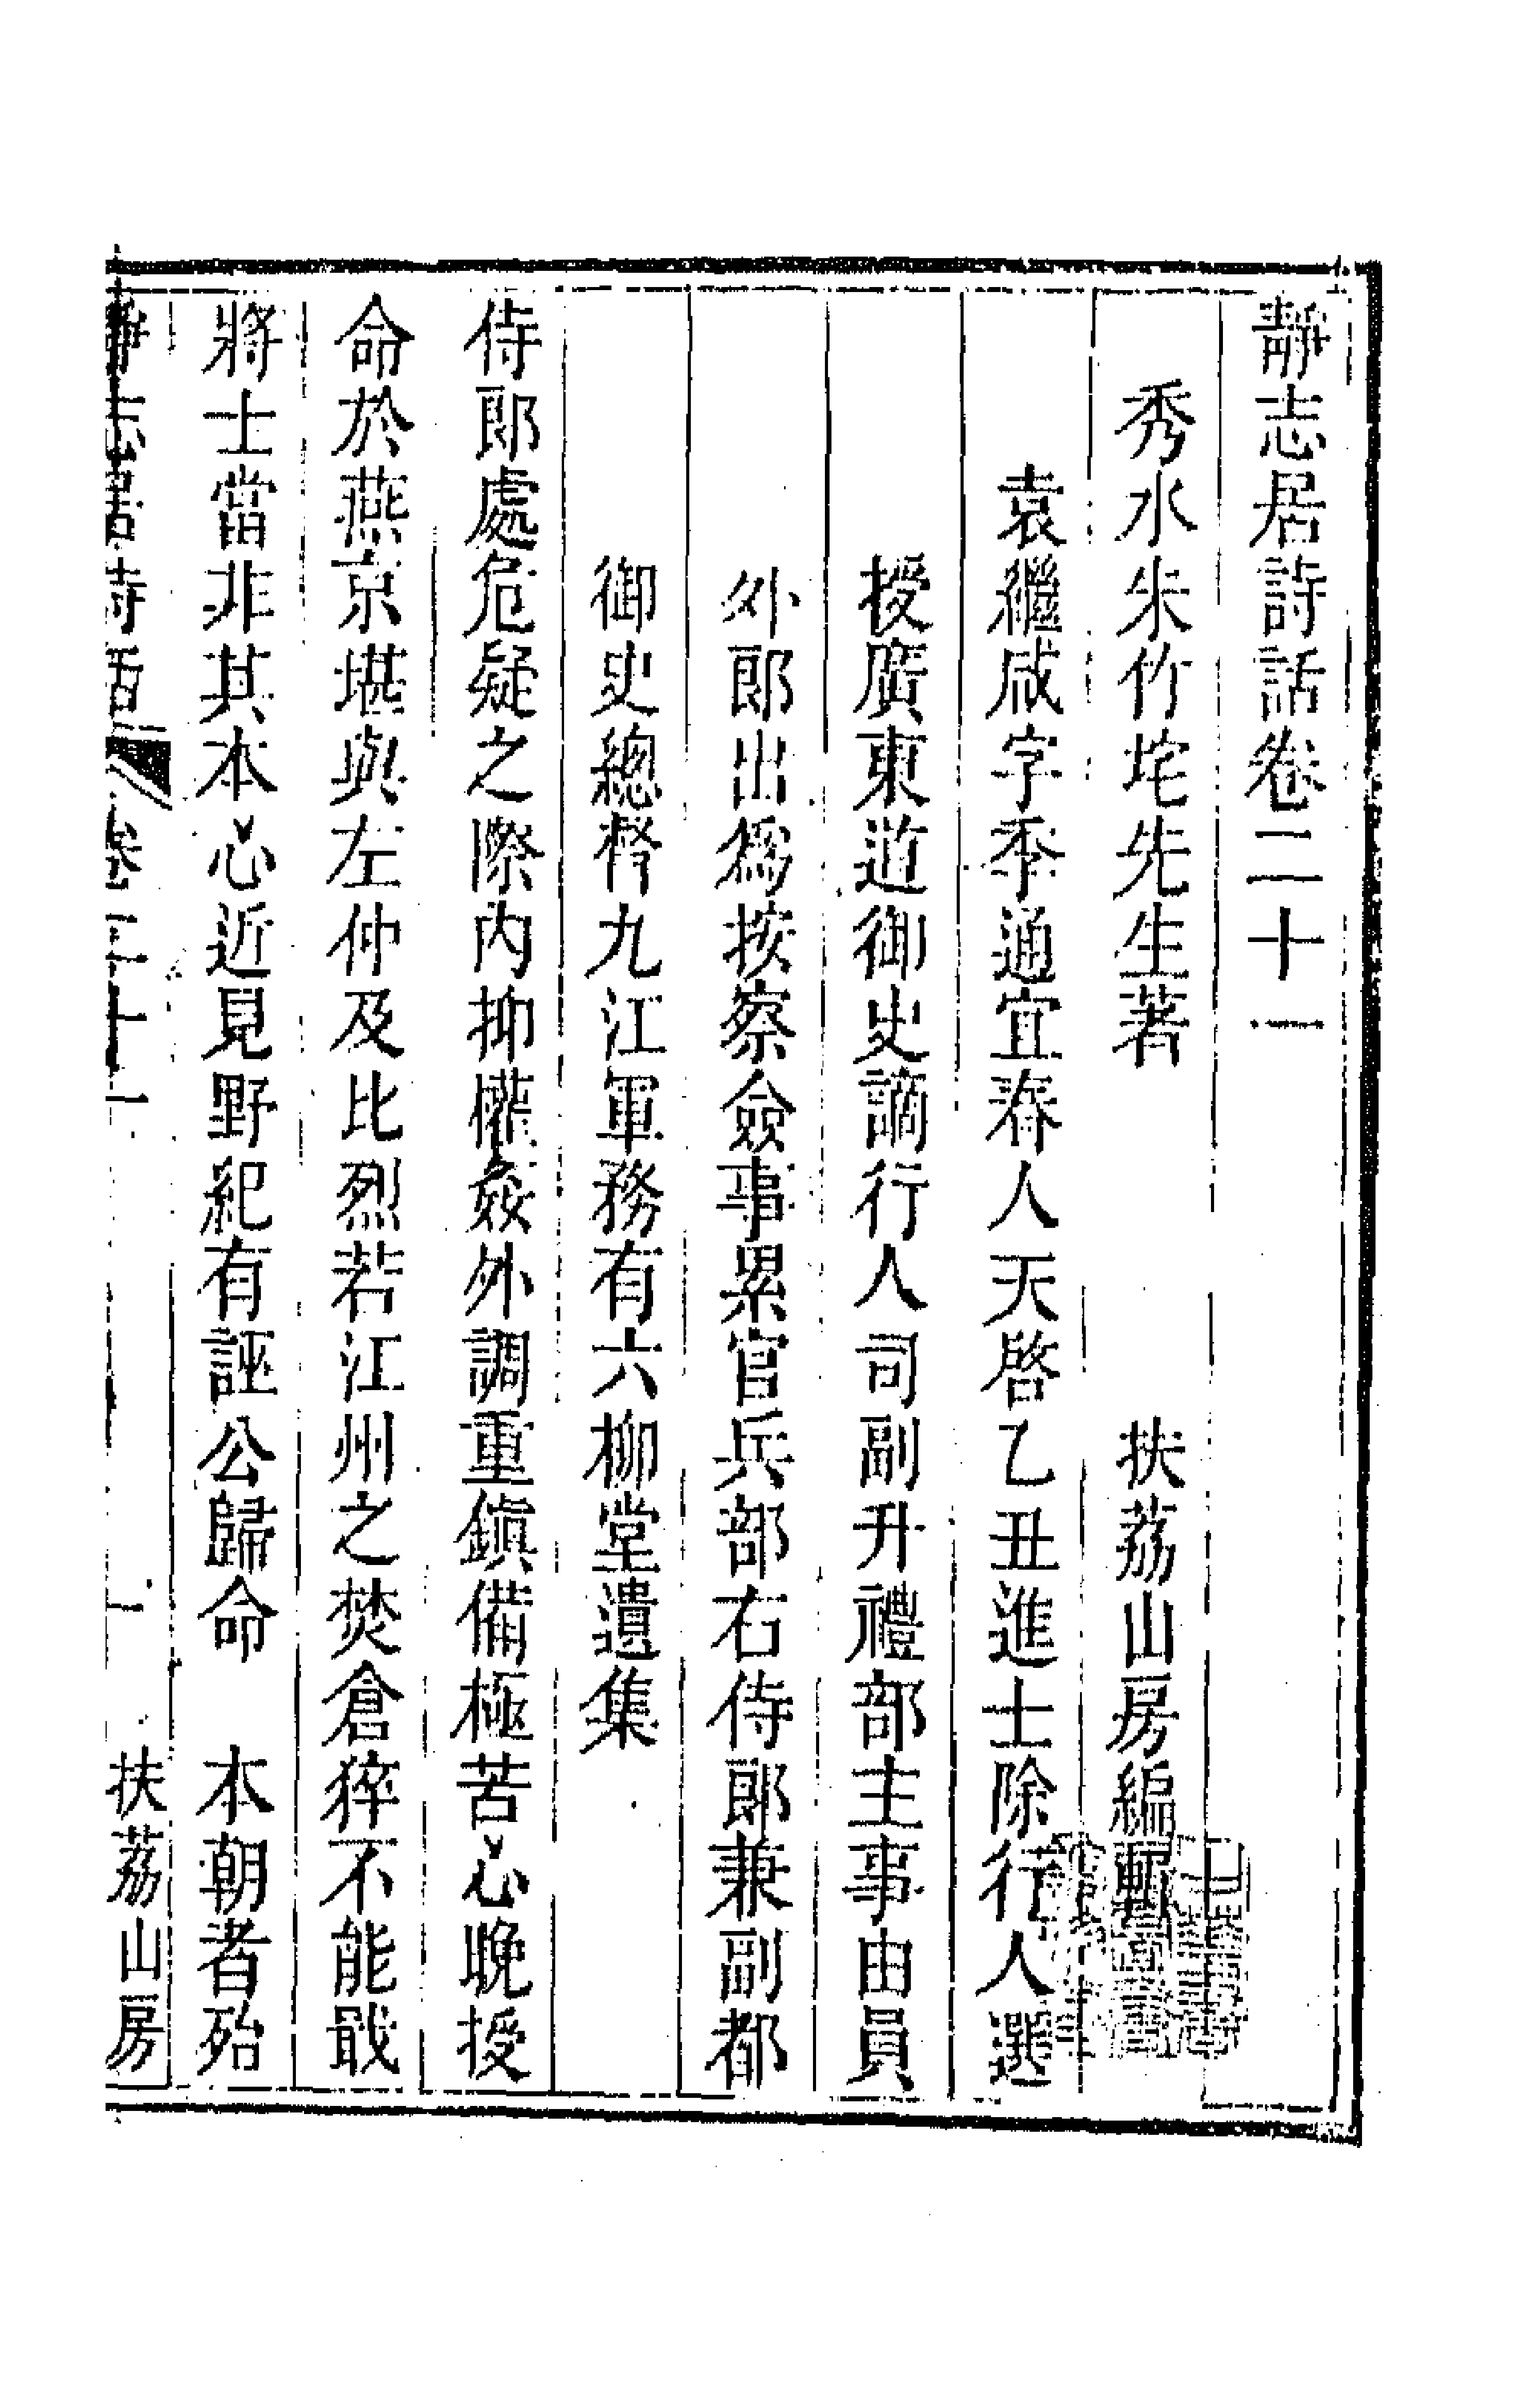 靜志居詩話卷二十一
秀水朱竹垞先生著　扶荔山房編輯
袁繼咸字季通宜春人天啓乙丑進士除行人選
授廣東道御史謫行人司副升禮部主事由員
外郎出爲按察僉事累官兵部右侍郎兼副都
御史總督九江軍務有六柳堂遺集
侍郎處危疑之際內抑權姦外調重鎭備極苦心晚授
命於燕京堪與左仲及比烈若江州之焚倉猝不能戢
將士當非其本心近見野紀有誣公歸命　本朝者殆
靜志居詩話　卷二十一　一　扶荔山房